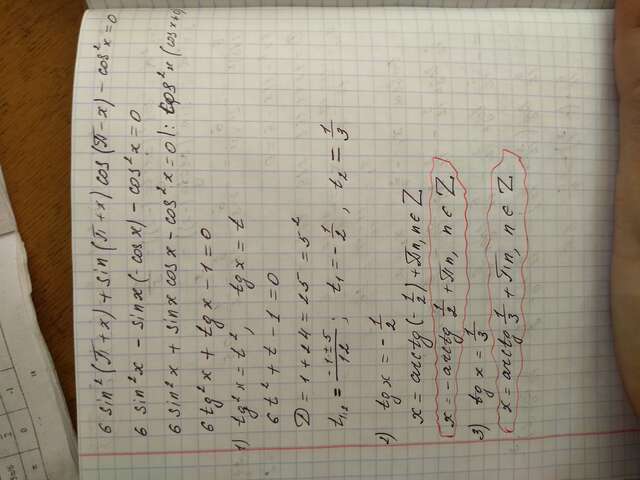 6 sin²(π+x) + sin(π+x) cos(π-x) - cos²x = 0
6 sin²x - sinx(-cosx) - cos²x = 0
6 sin²x + sinx cosx - cos²x = 0 | : cos²x (cosx≠
6 tg²x + tgx - 1 = 0
1) tg²x = t², tgx = t
6t² + t - 1 = 0
D = 1 + 24 = 25 = 5²
t₁,₂ = (-1±5)/12; t₁ = -1/2, t₂ = 1/3
2) tg x = -1/2
x = arctg(-1/2) + πn, n∈Z
x = -arctg 1/2 + πn, n∈Z
3) tg x = 1/3
x = arctg 1/3 + πn, n∈Z